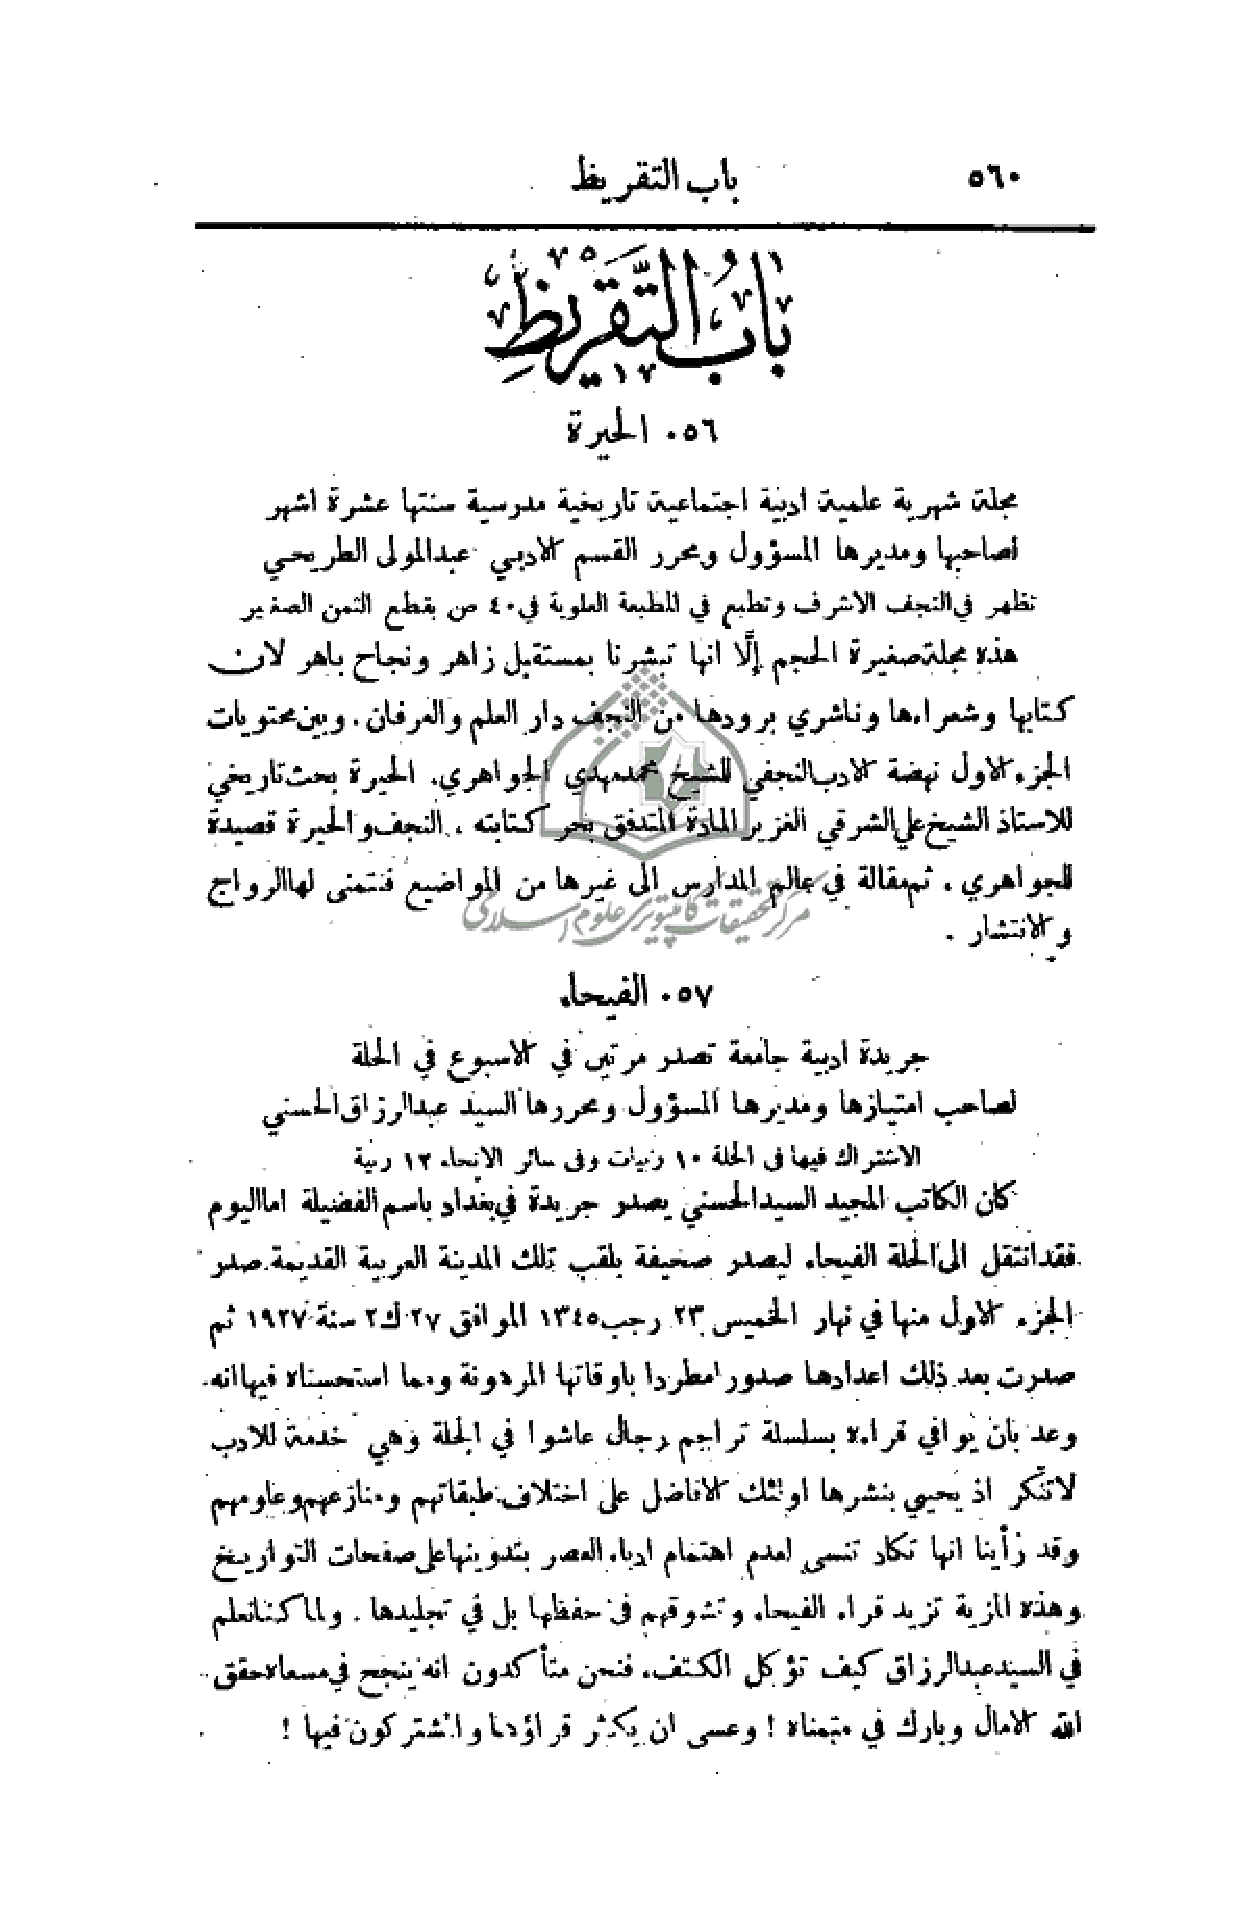 ٥٦٠ باب التقريظ
باب التقريظ
٠٥٦ الحيرة
مجلة شهرية علمية ادبية اجتماعية تاريخية مدرسية سنتها عشرة اشهر
لصاحبها ومديرها المسؤول ومحرر القسم الادبي عبدالمولى الطريحي
تظهر في النجف الاشرف وتطبع في المطبعة العلوية في ٤٠ ص بقطع الثمن الصغير
هذه مجلة صغيرة الحجم إلَّا انها تبشرنا بمستقبل زاهر ونجاح باهر لان
كتابها وشعراءها وناشري برودها من النجف دار العلم والعرفان. وبين محتويات
الجزء الاول نهضة الادب النجفي للشيخ محمد مهدي الجواهري. الحيرة بحث تاريخي
للاستاذ الشيخ علي الشرقي الغزير المادة المتدفق بحر كتابته. النجف والحيرة قصيدة
للجواهري. ثم مقالة في عالم المدارس الى غيرها من المواضيع فنتمنى لها الرواج
والانتشار.
مركز تحقيقات كامپيوتري علوم اسلامي
٠٥٧ الفيحاء
جريدة ادبية جامعة تصدر مرتين في الاسبوع في الحلة
لصاحب امتيازها ومديرها المسؤول ومحررها السيد عبدالرزاق الحسني
الاشتراك فيها في الحلة ١٠ ربيات وفي سائر الانحاء ١٢ ربية
كان الكاتب المجيد السيد الحسني يصدر جريدة في بغداد باسم الفضيلة اما اليوم
فقد انتقل الى الحلة الفيحاء ليصدر صحيفة بلقب تلك المدينة العربية القديمة. صدر
الجزء الاول منها في نهار الخميس ٢٣ رجب ١٣٤٥ الموافق ٢٧ ك٢ سنة ١٩٢٧ ثم
صدرت بعد ذلك اعدادها صدورا مطردا باوقاتها المرهونة ومما استحسناه فيها انه
وعد بان يوافي قراءه بسلسلة تراجم رجال عاشوا في الحلة وهي خدمة للادب
لاتنكر اذ يحيي بنشرها اولئك الافاضل على اختلاف طبقاتهم ومنازعهم وعلومهم
وقد رأينا انها تكاد تنسى لعدم اهتمام ادباء العصر بتدوينها على صفحات التواريخ
وهذه المزية تزيد قراء الفيحاء وتشوقهم في حفظها بل في تجليدها. ولما كنا نعلم
في السيد عبدالرزاق كيف تؤكل الكتف، فنحن متأكدون انه ينجح في مسعاه حقق
الله الامال وبارك في متمناه ! وعسى ان يكثر قراؤها والمشتركون فيها !